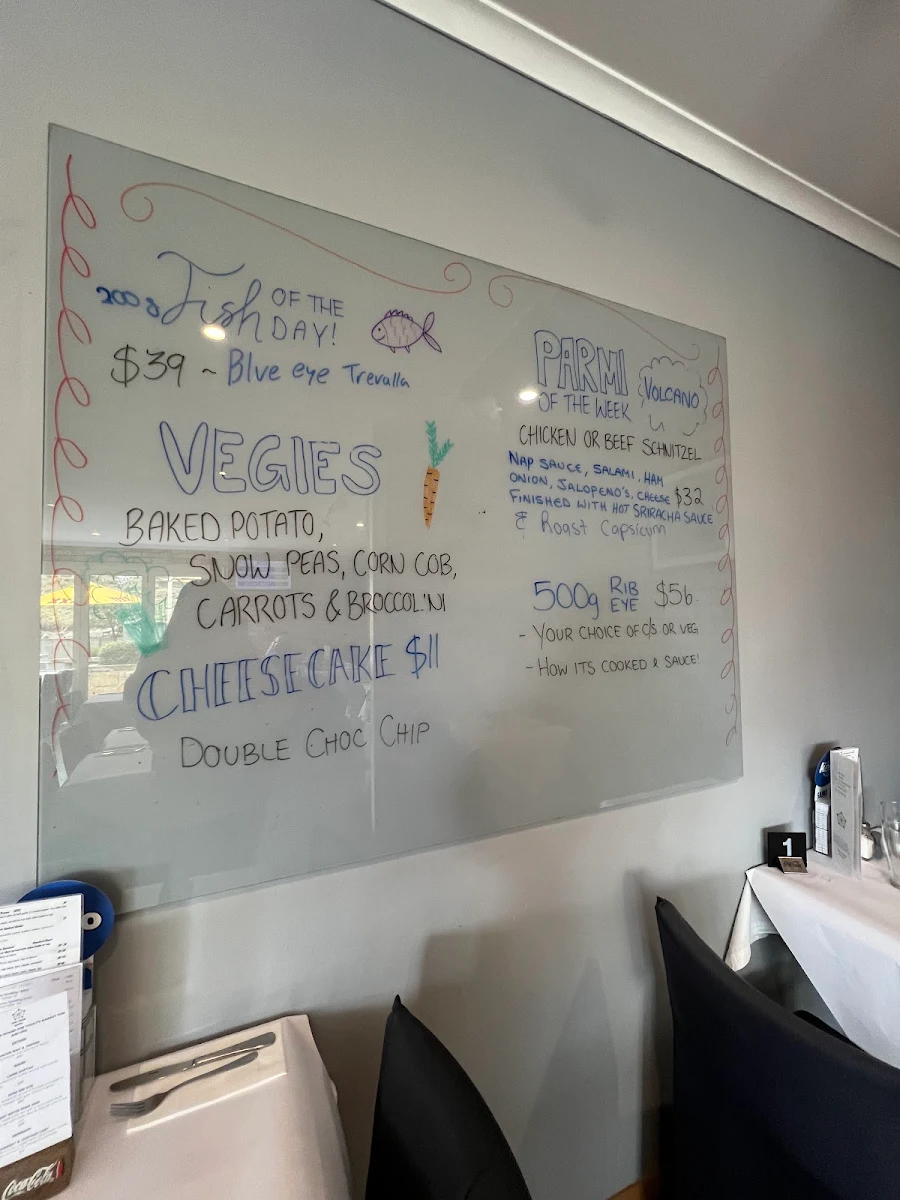 200g Fish OF THE DAY!
$39 ~ Blue eye Trevalla
VEGIES
BAKED POTATO,
SNOW PEAS, CORN COB,
CARROTS & BROCCOL'NI
CHEESECAKE $11
DOUBLE CHOC CHIP
PARMI
OF THE WEEK
VOLCANO
CHICKEN OR BEEF SCHNITZEL
NAP SAUCE, SALAMI, HAM
ONION, JALOPENO'S, CHEESE $32
FINISHED WITH HOT SRIRACHA SAUCE
& Roast Capsicum
500g RIB EYE $56
- YOUR CHOICE OF C/S OR VEG
- HOW ITS COOKED & SAUCE!
1
Coca-Cola